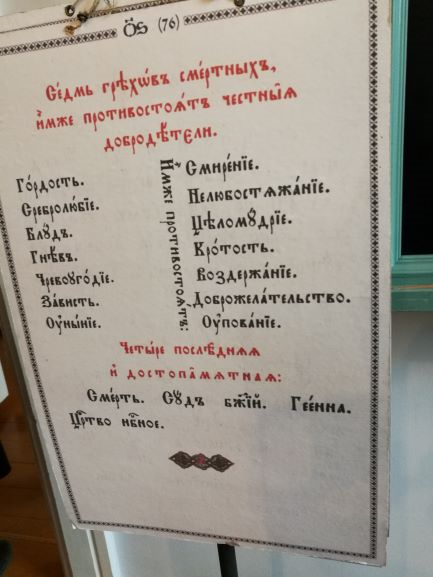 Ѻ҃Ѕ (76)
Се́дмь грѣхѡ́въ сме́ртныхъ,
и҆̀мже противостоѧ́тъ честны̑ѧ
добродѣ́тєли.
Го́рдость.
Сребролю́бїе.
Блꙋ́дъ.
Гнѣ́въ.
Чревоуго́дїе.
За́висть.
Оу҆ны́нїе.
И҆̀мже противостоѧ́тъ:
Смире́нїе.
Нелюбостѧжа́нїе.
Цѣломꙋ́дрїе.
Кро́тость.
Воздержа́нїе.
Доброжела́тельство.
Оу҆пова́нїе.
Четы́ре послѣ̑днѧѧ
и҆ достопа́мѧтнаѧ:
Сме́рть. Сꙋ́дъ бж҃їй. Гее́нна.
Црⷭ҇тво нбⷭ҇ное.